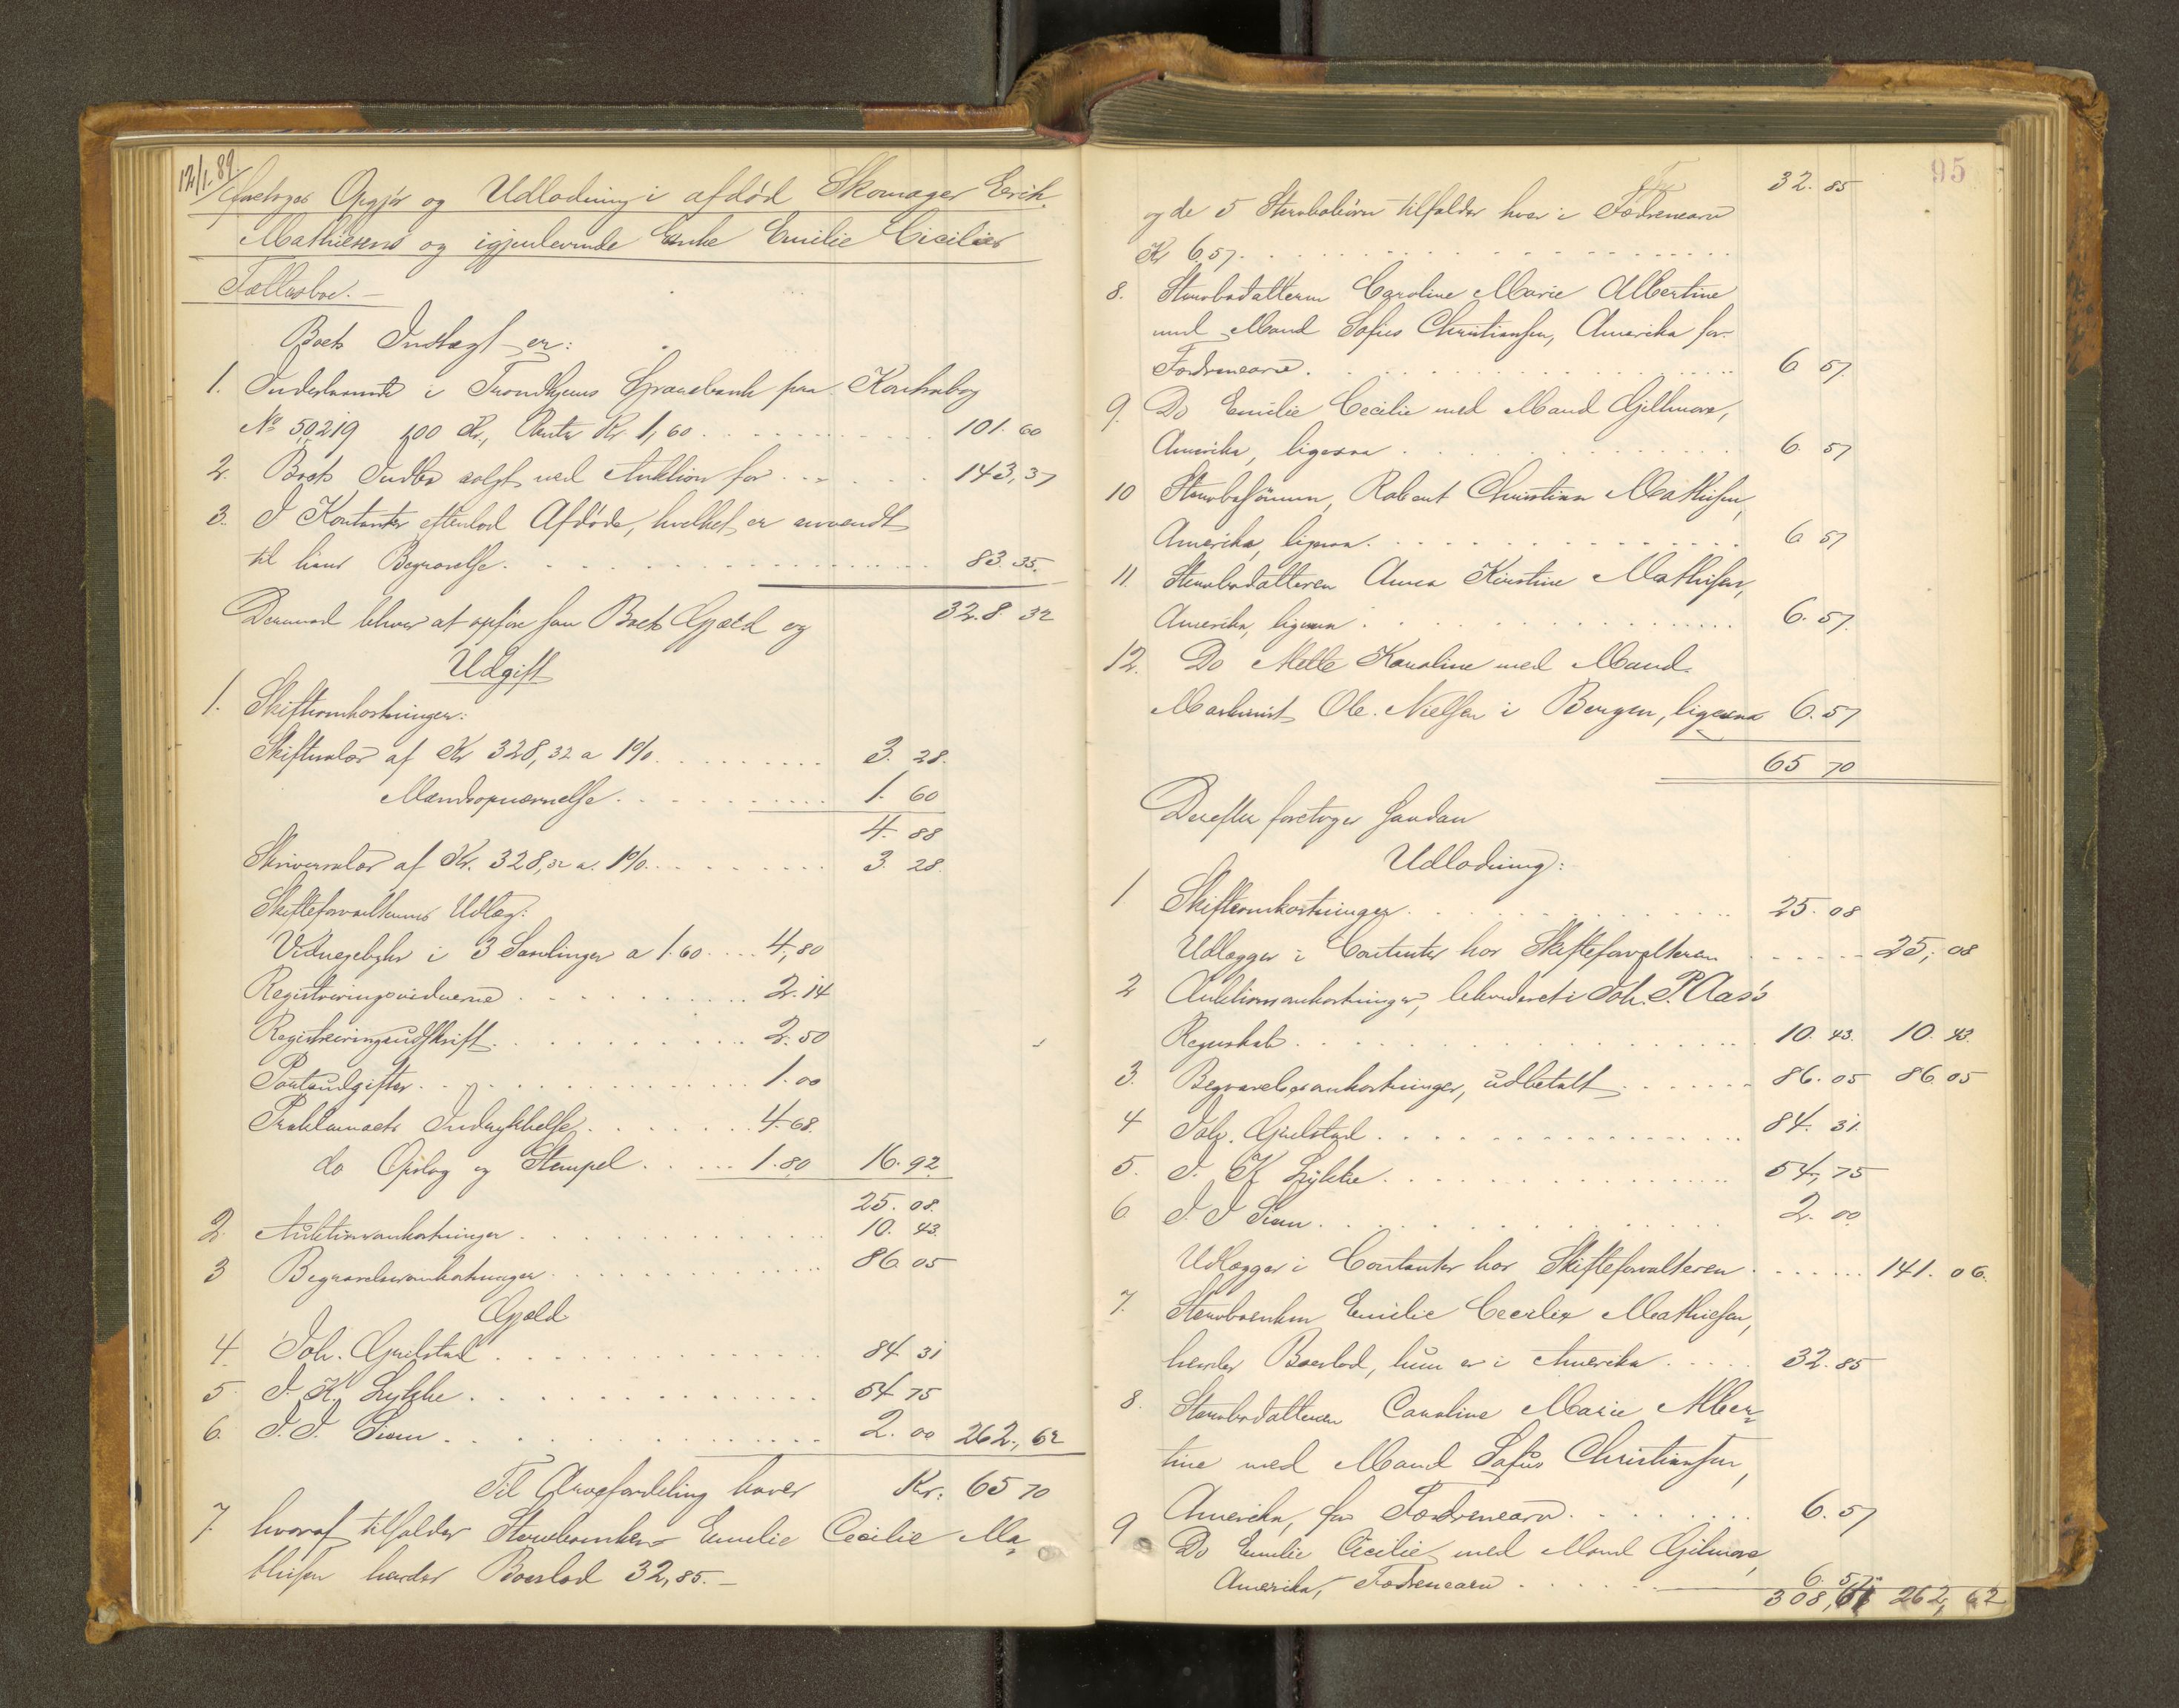 12/1.89.
foretoges Opgjør og Udlodning i afdød Skomager Erik
Mathiesens og igjenlevende Enke Emilie Cicilies
Fællesbo.—
Boets Indtægt er:
1. Indestaaende i Trondhjems Sparebank paa Kontrabog
No 50,219 100 Kr., Renter Kr. 1,60 101.60
2. Boets Indbo solgt ved Auktion for 143,37
3. I Kontanter efterlod Afdøde, hvilket er anvendt
til hans Begravelse. 83.35.
328.32
Derimod bliver at opføre som Boets Gjæld og
Udgift
1. Skifteomkostninger:
Skiftesalær af Kr 328,32 a 1% 3.28.
Mændsopnævnelse. 1.60
4.88
Skriversalær af Kr. 328,32 a. 1% 3.28.
Skifteforvalterens Udlæg:
Vidnegebyhr i 3 Samlinger a 1.60 4,80
Registreringsvidnerne 2.14
Registreringsudskrift. 2.50
Postudgifter. 1.00
Proklamaets Indrykkelse 4.68.
do Opslag og Stempel 1.80 16.92
25.08.
2. Auktionsomkostninger 10.43.
3 Begravelsesomkostninger 86.05
Gjæld
4. Joh. Gjulstad 84 31
5 J. K. Lykke 54 75
6. J. J. Siem 2.00 262,62
Til Arvefordeling haves Kr. 65 70
7. hvoraf tilfalder Sterboenken Emilie Cecilie Ma=
thisen hendes Boeslod 32,85.—
95
32.85
og de 5 Sterbobørn tilfalder hver i Fædrenearv
Kr 6.57.
8. Sterbodatteren Caroline Marie Albertine
med Mand Sofus Christiansen, Amerika for
Fædrenearv. 6 57.
9. Do Emilie Cecilie med Mand Gillmore,
Amerika, ligesaa 6.57
10 Sterbosønnen, Robert Christian Mathisen,
Amerika, ligesaa. 6 57
11. Sterbodatteren Anna Kirstine Mathisen,
Amerika, ligesaa 6.57.
12. Do Mette Karoline med Mand
Maskinist Ole Nielsen i Bergen, ligesaa 6.57
65 70
Derefter foretoges saadan
Udlodning:
1 Skifteomkostninger 25.08
Udlægges i Contanter hos Skifteforvalteren 25,08
2 Auktionsomkostninger, likvideret i Joh. P. Aas's
Regnskab 10.43. 10.43.
3. Begravelsesomkostninger, udbetalt 86.05 86.05
4 Joh. Gjulstad 84.31.
5. J. K Lykke 54,75
6. J. J Siem 2.00
Udlægges i Contanter hos Skifteforvalteren 141.06.
7. Sterboenken Emilie Cecilie Mathiesen,
hendes Boeslod, hun er i Amerika 32.85
8. Sterbodatteren Caroline Marie Alber=
tine med Mand Sofus Christiansen,
Amerika, for Fædrenearv. 6.57
9 Do Emilie Cicilie med Mand Gilmore,
Amerika, Fædrenearv 6.57.
308,61 262,62